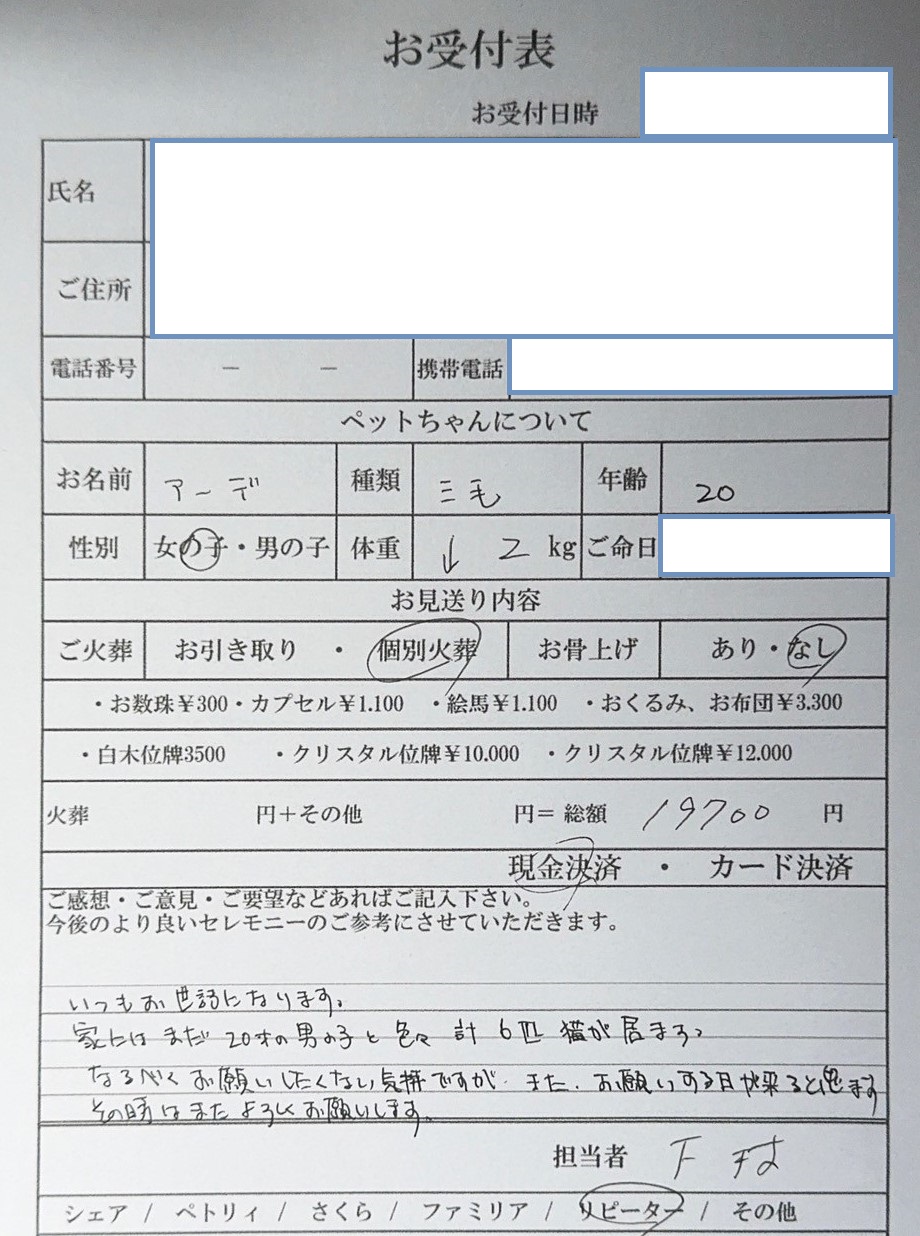 お受付表
お受付日時
氏名
ご住所
電話番号 － － 携帯電話
ペットちゃんについて
お名前 アーデ 種類 三毛 年齢 20
性別 女の子・男の子 体重 ↓ 2 kg ご命日
お見送り内容
ご火葬 お引き取り ・ 個別火葬 お骨上げ あり・なし
・お数珠¥300・カプセル¥1.100 ・絵馬¥1.100 ・おくるみ、お布団¥3.300
・白木位牌3500 ・クリスタル位牌¥10.000 ・クリスタル位牌¥12.000
火葬 円＋その他 円＝ 総額 19700 円
現金決済 ・ カード決済
ご感想・ご意見・ご要望などあればご記入下さい。
今後のより良いセレモニーのご参考にさせていただきます。
いつもお世話になります。
家にはまだ 20才の男の子と色々 計 6匹 猫が居まる
なるべくお願いしたくない気持ですが、また、お願いする日が来ると思ます
その時はまたよろしくお願いします。
担当者 下
シェア / ペトリィ / さくら / ファミリア / リピーター / その他